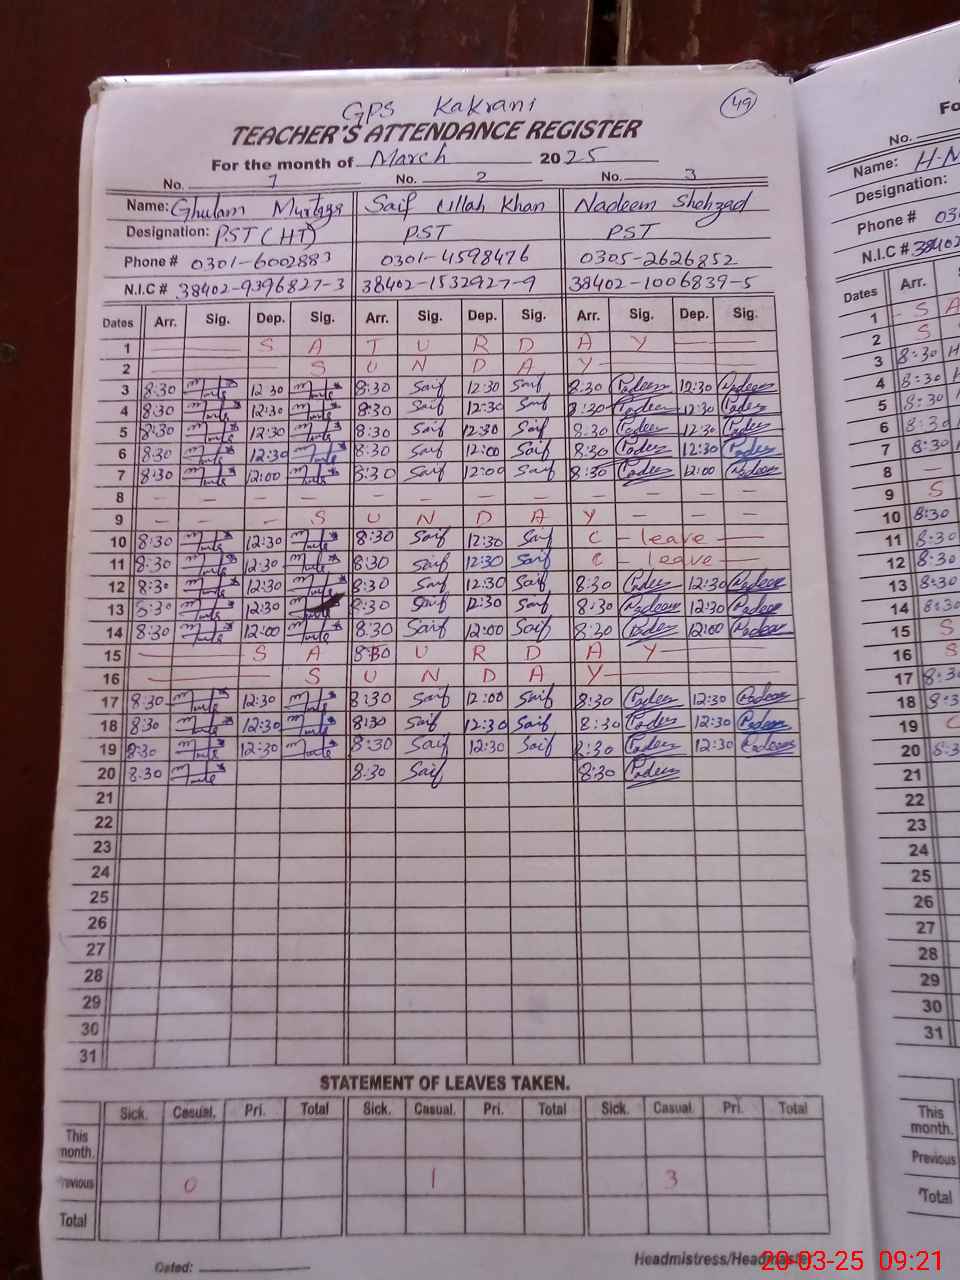 GPS Kakrani 49
TEACHER'S ATTENDANCE REGISTER
For the month of March 2025
No. 1 No. 2 No. 3
Name: Ghulam Murtaza Saif Ullah Khan Nadeem Shehzad
Designation: PST (HT) PST PST
Phone # 0301-6002883 0301-4598476 0305-2626852
N.I.C # 38402-9396827-3 38402-1532927-9 38402-1006839-5
Dates Arr. Sig. Dep. Sig. Arr. Sig. Dep. Sig. Arr. Sig. Dep. Sig.
1 S A T U R D A Y
2 S U N D A Y
3 8:30 12:30 8:30 Saif 12:30 Saif 8:30 12:30
4 8:30 12:30 8:30 Saif 12:30 Saif 8:30 12:30
5 8:30 12:30 8:30 Saif 12:30 Saif 8:30 12:30
6 8:30 12:30 8:30 Saif 12:00 Saif 8:30 12:30
7 8:30 12:00 8:30 Saif 12:00 Saif 8:30 12:00
8 – – – – – – – – – – – –
9 – – – S U N D A Y – – –
10 8:30 12:30 8:30 Saif 12:30 Saif C - leave
11 8:30 12:30 8:30 Saif 12:30 Saif C - leave
12 8:30 12:30 8:30 Saif 12:30 Saif 8:30 12:30
13 8:30 12:30 8:30 Saif 12:30 Saif 8:30 12:30
14 8:30 12:00 8:30 Saif 12:00 Saif 8:30 12:00
15 S A U R D A Y
16 S U N D A Y
17 8:30 12:30 8:30 Saif 12:00 Saif 8:30 12:30
18 8:30 12:30 8:30 Saif 12:30 Saif 8:30 12:30
19 8:30 12:30 8:30 Saif 12:30 Saif 8:30 12:30
20 8:30 8:30 Saif 8:30
21
22
23
24
25
26
27
28
29
30
31
STATEMENT OF LEAVES TAKEN.
Sick. Casual. Pri. Total Sick. Casual. Pri. Total Sick. Casual. Pri. Total
This month.
Previous 0 1 3
Total
Dated: Headmistress/Headmaster
No.
Name:
Designation:
Phone # 03
N.I.C # 38402
Dates Arr.
1 S
2 S
3 8:30
4 8:30
5 8:30
6 8:30
7 8:30
8 –
9 S
10 8:30
11 8:30
12 8:30
13 8:30
14 8:30
15 S
16 S
17 8:30
18
19 C
20
21
22
23
24
25
26
27
28
29
30
31
This month.
Previous
Total
20-03-25 09:21